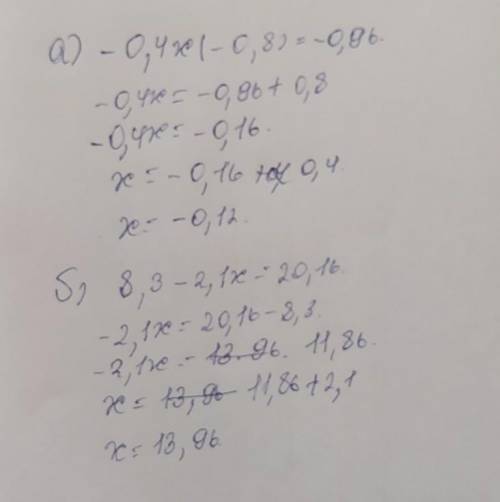 а) -0,4x(-0,8)=-0,96.
-0,4x=-0,96+0,8
-0,4x=-0,16.
x=-0,16+0,4.
x=-0,12.
б) 8,3-2,1x=20,16.
-2,1x=20,16-8,3.
-2,1x=13.96. 11,86.
x=13,96 11,86+2,1
x=13,96.